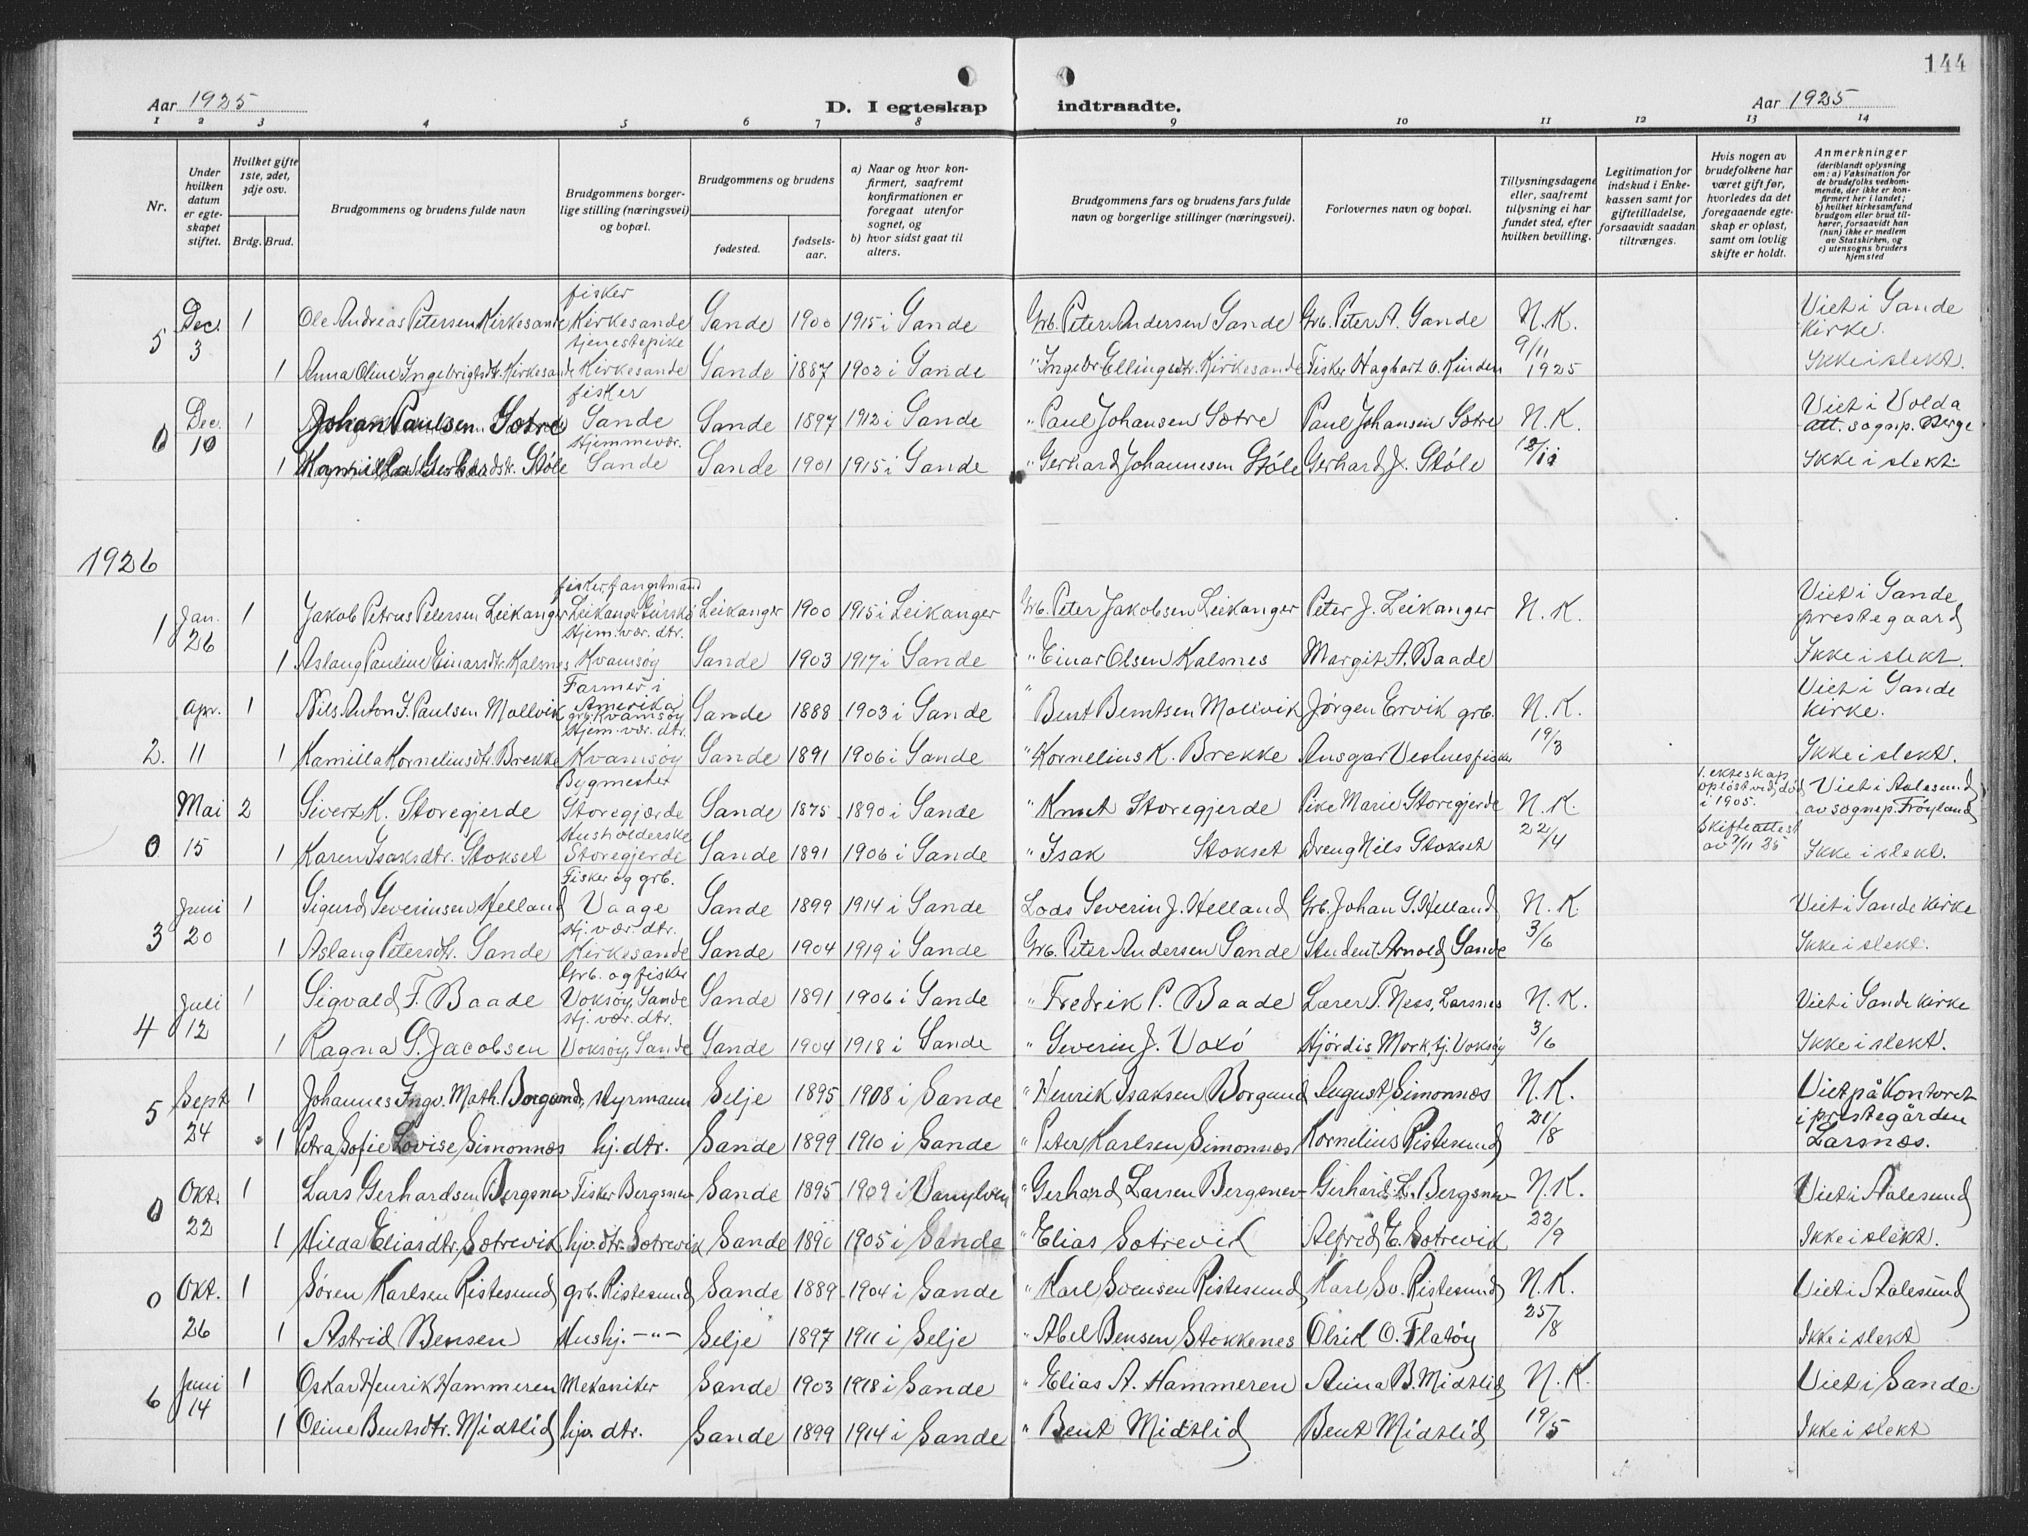 144
Aar 1925
D. I egteskap indtraadte.
Aar 1925
1 2 3 4 5 6 7 8 9 10 11 12 13 14
Nr.
Under hvilken datum er egteskapet stiftet.
Hvilket gifte 1ste, 2det, 3dje osv.
Brdg. Brud.
Brudgommens og brudens fulde navn
Brudgommens borgerlige stilling (næringsvei) og bopæl.
Brudgommens og brudens
fødested.
fødselsaar.
a) Naar og hvor konfirmert, saafremt konfirmationen er foregaat utenfor sognet, og
b) hvor sidst gaat til alters.
Brudgommens fars og brudens fars fulde navn og borgerlige stillinger (næringsvei).
Forlovernes navn og bopæl.
Tillysningsdagene eller, saafremt tillysning ei har fundet sted, efter hvilken bevilling.
Legitimation for indskud i Enkekassen samt for giftetilladelse, forsaavidt saadan tiltrænges.
Hvis nogen av brudefolkene har været gift før, hvorledes da det foregaaende egteskap er opløst, samt om lovlig skifte er holdt.
Anmerkninger
(deriblandt oplysning om: a) Vaksination for de brudefolks vedkommende, der ikke er konfirmert her i landet; b) hvilket kirkesamfund brudgom eller brud tilhører, forsaavidt han (hun) ikke er medlem av Statskirken, og c) utensogns bruders hjemsted
5 Dec. 3 1 Ole Andreas Petersen Kirkesande fisker Kirkesande Sande 1900 1915 i Sande Grb. Peter Andersen Sande Grb. Peter A. Sande N. K. Viet i Sande kirke.
1 Anna Oline Ingebrigtsdtr. Kirkesande tjenestepike Kirkesande Sande 1887 1902 i Sande " Ingebr Ellingsdtr. Kirkesande Fisker Hagbart O. Kinden 9/11 1925 Ikke i slekt.
0 Dec. 10 1 Johan Paulsen Sætre fisker Sande Sande 1897 1912 i Sande " Paul Johansen Sætre Paul Johansen Sætre N. K. Viet i Volda att. sognep. Berge
1 Kamilla Gerhardstr. Støle hjemmevær. Sande Sande 1901 1915 i Sande " Gerhard Johannesen Støle Gerhard J. Støle 12/11 Ikke i slekt.
1926
1 Jan. 26 1 Jakob Petrus Petersen Leikanger fisker, fangstmand Leikanger Gurskø Leikanger 1900 1915 i Leikanger Grb. Peter Jakobsen Leikanger Peter J. Leikanger N. K. Viet i Sande prestegaard
1 Aslaug Pauline Einarsdtr. Kalsnes Hjem. vær. dtr. Kvamsøy Sande 1903 1917 i Sande " Einar Olsen Kalsnes Margit A. Baade Ikke i slekt.
2. apr. 11 1 Nils Anton J. Paulsen Mollvik Farmer i Amerika grb. Kvamsøy Sande 1888 1903 i Sande " Bent Berntsen Mollvik Jørgen Ervik grb. N. K. Viet i Sande kirke.
1 Kamilla Korneliusdtr. Brekke Hjem. vær. dtr. Kvamsøy Sande 1891 1906 i Sande " Kornelius K. Brekke Ansgar Vestnes fisker 19/3 Ikke i slekt.
0 Mai 15 2 Sivert K. Storegjerde Bygmester Storegjærde Sande 1875 1890 i Sande " Knut Storegjerde Pike Marie Storegjerde N. K. 1. ekteskap opløst ved død i 1905. Viet i Aalesund av sognep. Frøyland
1 Karen Isaksdtr. Stokset Husholderske Storegjerde Sande 1891 1906 i Sande " Isak Stokset Dreng Nils Stokset 22/4 Skifteattest av 7/11 25 Ikke i slekt.
3 Juni 20 1 Sigurd Severinsen Helland Fisker og grb. Vaage Sande 1899 1914 i Sande Lods Severin J. Helland Grb. Johan S. Helland N. K. Viet i Sande kirke
1 Aslaug Petersdtr. Sande Hj. vær. dtr. Kirkesande Sande 1904 1919 i Sande Grb. Peter Andersen Sande Student Arnold Sande 3/6 Ikke i slekt.
4 Juli 12 1 Sigvald F. Baade Grb. og fisker Voksøy, Sande Sande 1891 1906 i Sande " Fredrik P. Baade Lærer T. Ness, Larsnes N. K. Viet i Sande kirke
1 Ragna S. Jacobsen Hj. vær. dtr. Voksøy, Sande Sande 1904 1918 i Sande " Severin J. Voxø Hjørdis Mork, tj. Voksøy 3/6 Ikke i slekt.
5 Sept 24 1 Johannes Ingv. Math. Borgund, styrmann Selje 1895 1908 i Sande " Henrik Isaksen Borgund August Simonnæs N. K. Viet på Kontoret i prestegården Larsnæs.
1 Petra Sofie Lovise Simonnæs hj. dtr. Sande 1899 1910 i Sande " Peter Karlsen Simonnæs Kornelius Ristesund 21/8
0 Okt. 22 1 Lars Gerhardsen Bergsnev Fisker Bergsnev Sande 1895 1909 i Vanylven " Gerhard Larsen Bergsnev Gerhard L. Bergsnev N. K. Viet i Aalesund
1 Hilda Eliasdtr. Sætrevik hjv. dtr. Sætrevik Sande 1890 1905 i Sande " Elias Sætrevik Alfred E. Sætrevik 22/9 Ikke i slekt.
0 Okt. 26 1 Søren Karlsen Ristesund grb. Ristesund Sande 1889 1904 i Sande " Karl Svensen Ristesund Karl Sv. Ristesund N. K. Viet i Aalesund
1 Astrid Bensen Hushj. -"- Selje 1897 1911 i Selje " Abel Bensen Stokkenes Olrik O. Flatøy 25/8 Ikke i slekt
6 Juni 14 1 Oskar Henrik Hammeren Mekaniker Sande 1903 1918 i Sande " Elias A. Hammeren Anna B. Midtlid N. K. Viet i Sande.
1 Oline Bentsdtr. Midtlid hjv. dtr. Sande 1899 1914 i Sande " Bent Midtlid Bent Midtlid 19/5 Ikke i slekt